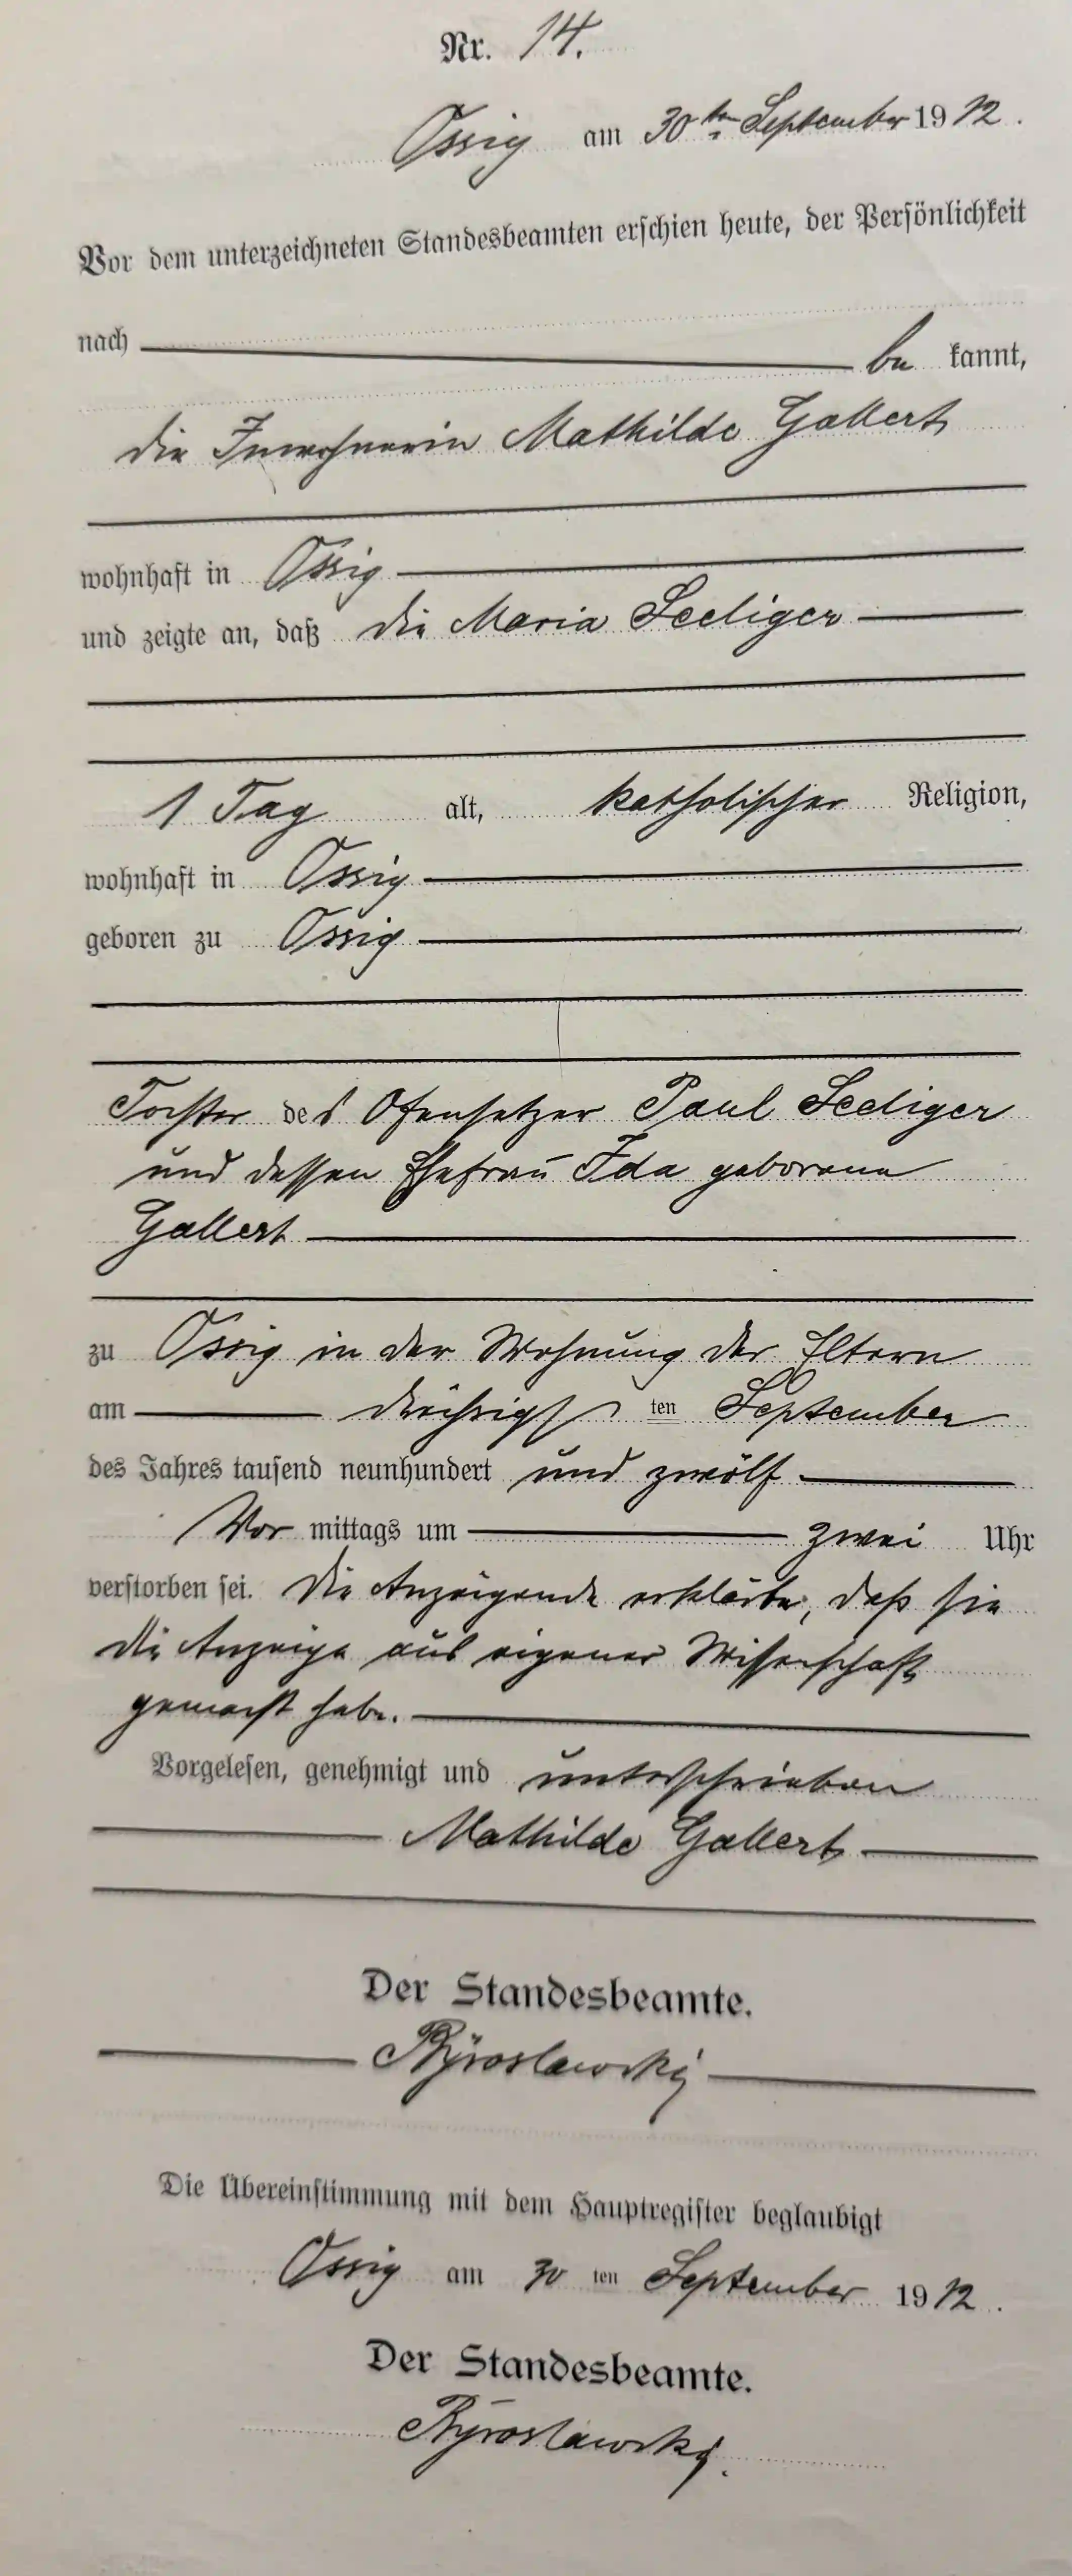 Nr. 14.
Ossig am 30ten September 1912.
Vor dem unterzeichneten Standesbeamten erschien heute, der Persönlichkeit
nach be kannt,
die Inwohnerin Mathilde Gallert
wohnhaft in Ossig
und zeigte an, daß die Maria Seeliger
1 Tag alt, katholischer Religion,
wohnhaft in Ossig
geboren zu Ossig
Tochter des Ofensetzer Paul Seeliger
und dessen Ehefrau Ida geborene
Gallert
zu Ossig in der Wohnung der Eltern
am dreißigsten September
des Jahres tausend neunhundert und zwölf
Vor mittags um zwei Uhr
verstorben sei. Die Anzeigende erklärte, daß sie
die Anzeige aus eigener Wissenschaft
gemacht habe.
Vorgelesen, genehmigt und unterschrieben
Mathilde Gallert
Der Standesbeamte.
Die Übereinstimmung mit dem Hauptregister beglaubigt
Ossig am 30 ten September 1912.
Der Standesbeamte.